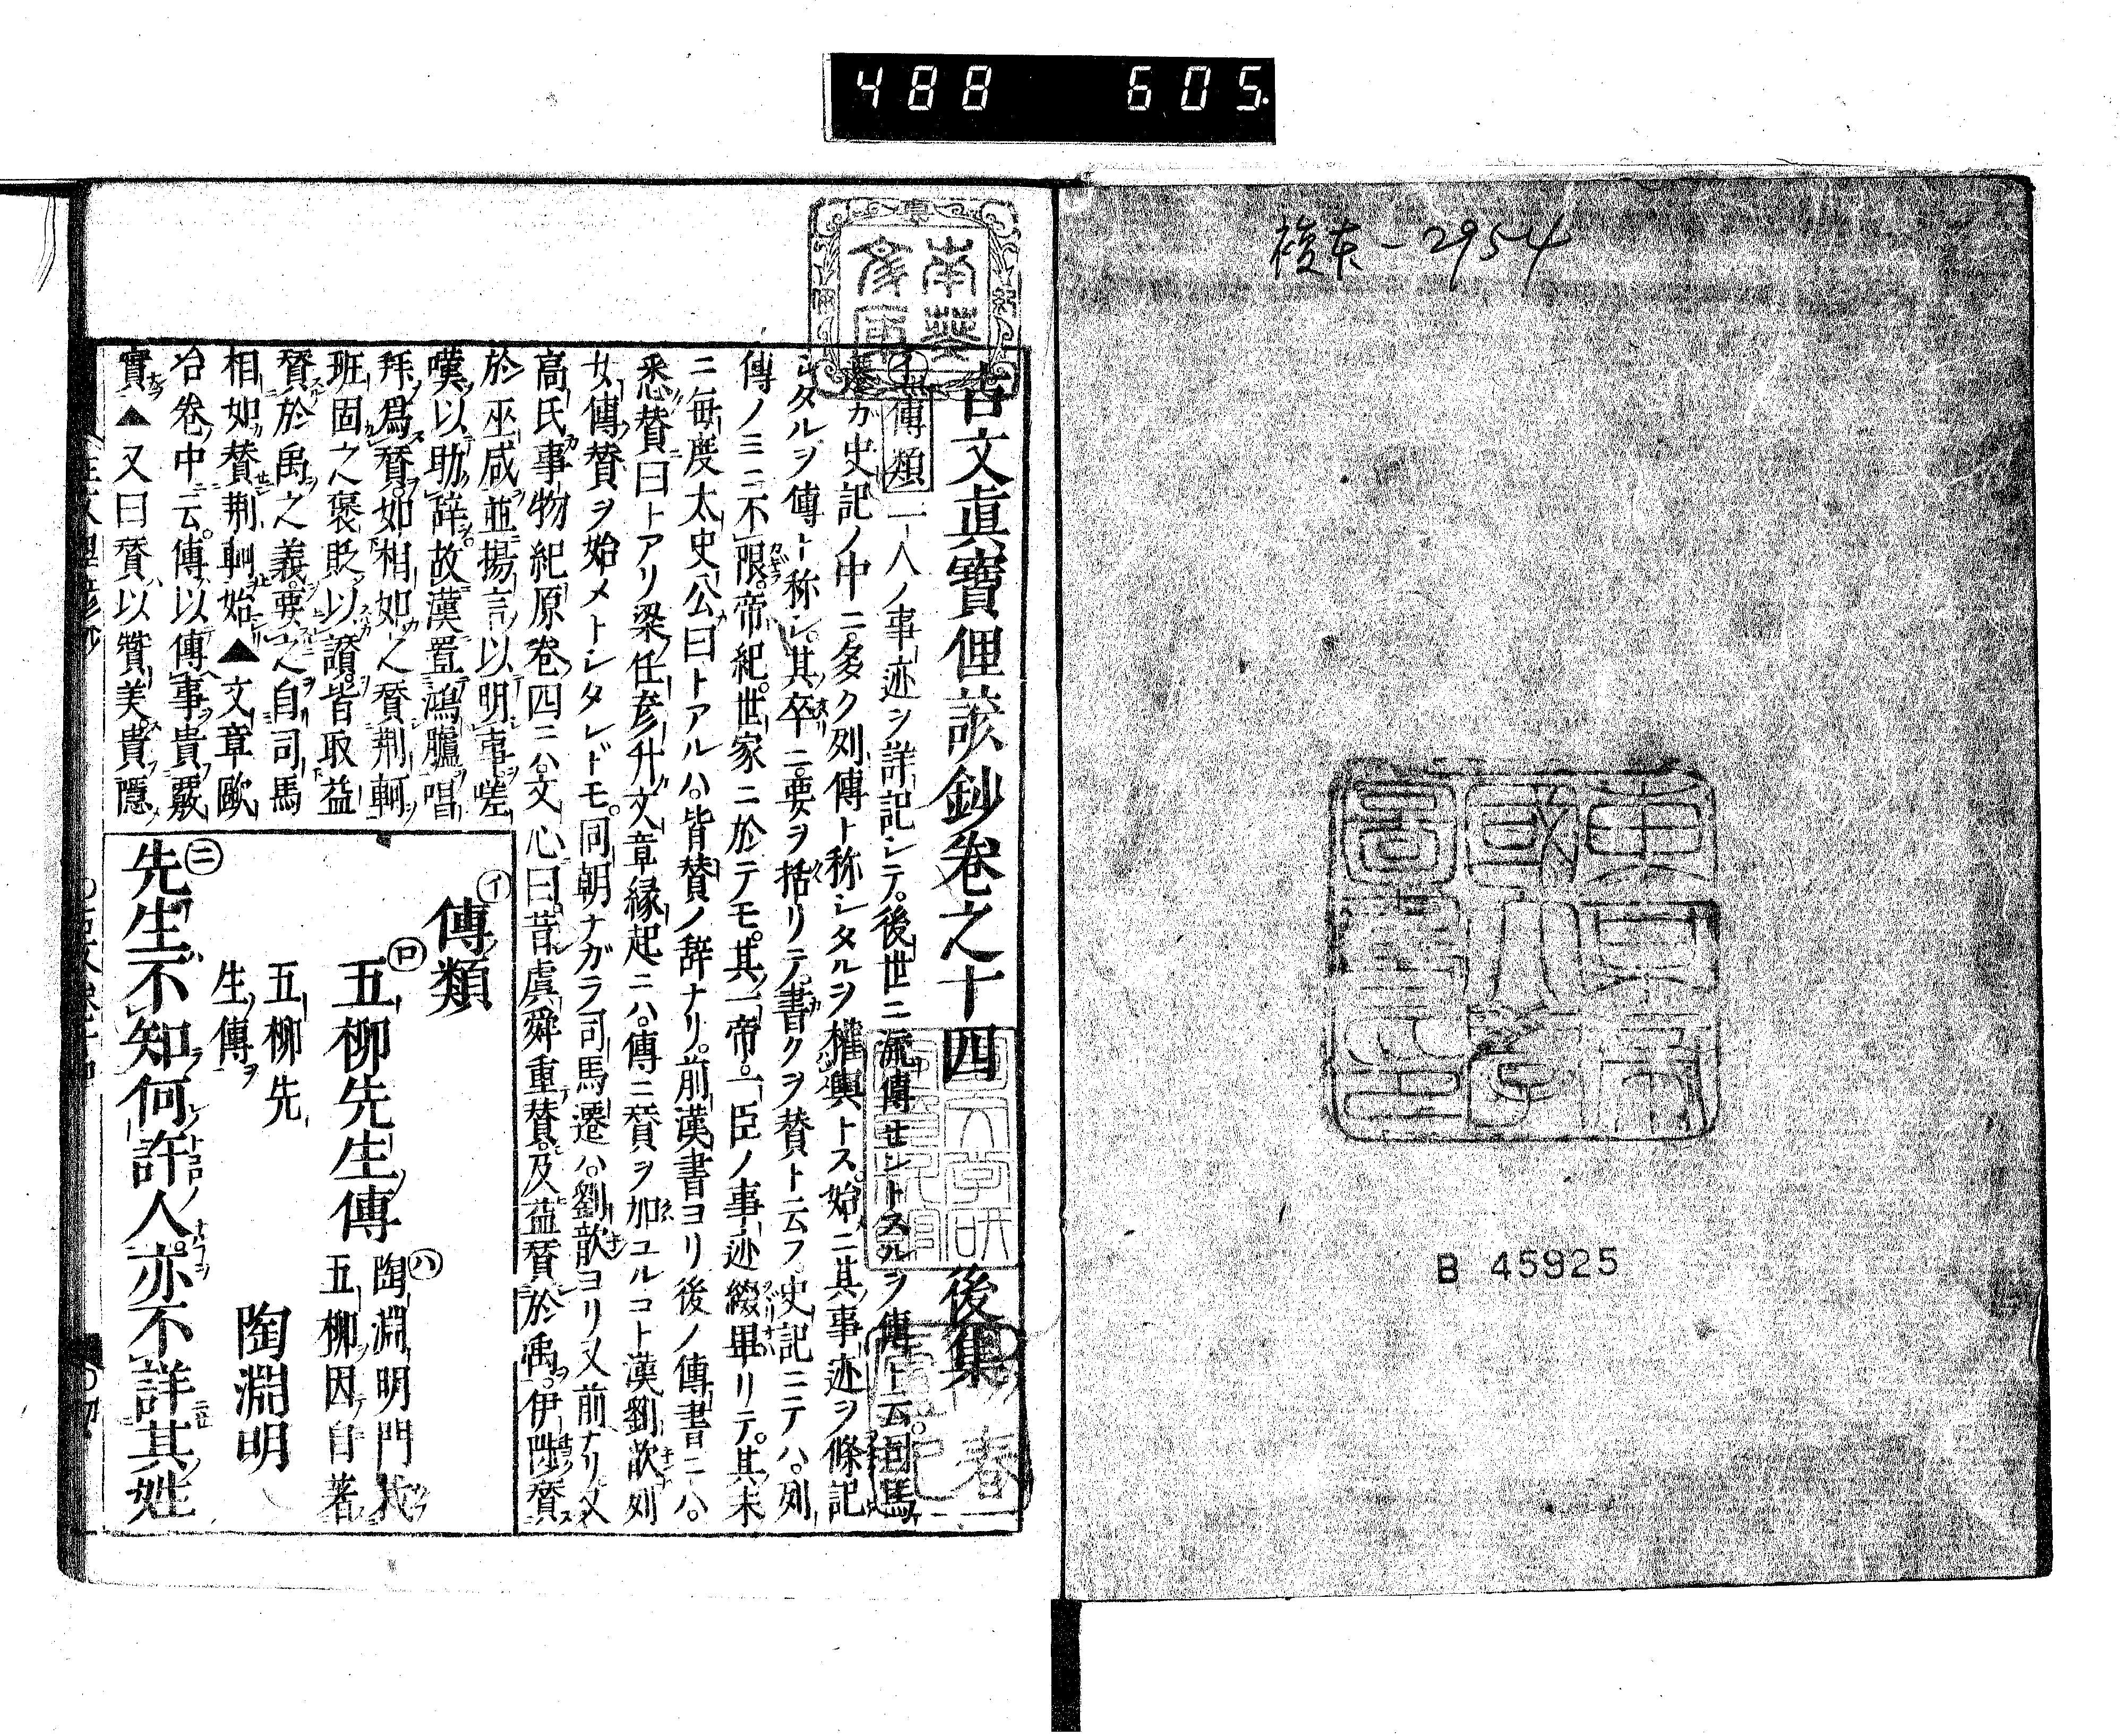 488 605
複本-2954
B 45925
古文眞寶俚諺鈔卷之十四 後集
㋑傳類 一人ノ事迹ヲ詳ニ記シテ。後世ニ流傳セシトスルヲ傳ト云。司馬
遷カ史記ノ中ニ。多ク列傳ト称シタルヲ權輿トス。始ニ其事迹ヲ條記
シタルヲ傳ト称シ。其卒ニ。要ヲ括リテ。書クヲ賛ト云フ。史記ニテハ。列
傳ノミニ不限。帝紀。世家ニ於テモ。其一帝。一臣ノ事迹綴畢リテ。其末
ニ毎度太史公曰トアルハ。皆賛ノ辞ナリ。前漢書ヨリ後ノ傳書ニハ。
悉賛曰トアリ梁任彦升文章縁起ニハ。傳ニ賛ヲ加ユルコト漢劉歆列
女傳賛ヲ始メトシタレドモ。同朝ナガラ司馬遷ハ。劉歆ヨリ又前ナリ又
高氏事物紀原卷四ニハ。文心曰昔虞舜重賛。及益賛於禹。伊陟賛
於巫咸並揚言以明事嗟
嘆以助辞。故漢置鴻臚唱
拜爲賛。如相如之賛荊軻
班固之褒貶以讃。皆取益
賛於禹之義。要之自司馬
相如賛荊軻始▲文章歐
冶卷中云。傳以傳事貴覈
實▲又曰賛以賛美貴隱
㋑傳類
㋺五柳先生傳
㋩陶淵明門栽
五柳因自著
五柳先
生傳
陶淵明
㊁先生不知何許人亦不詳其姓